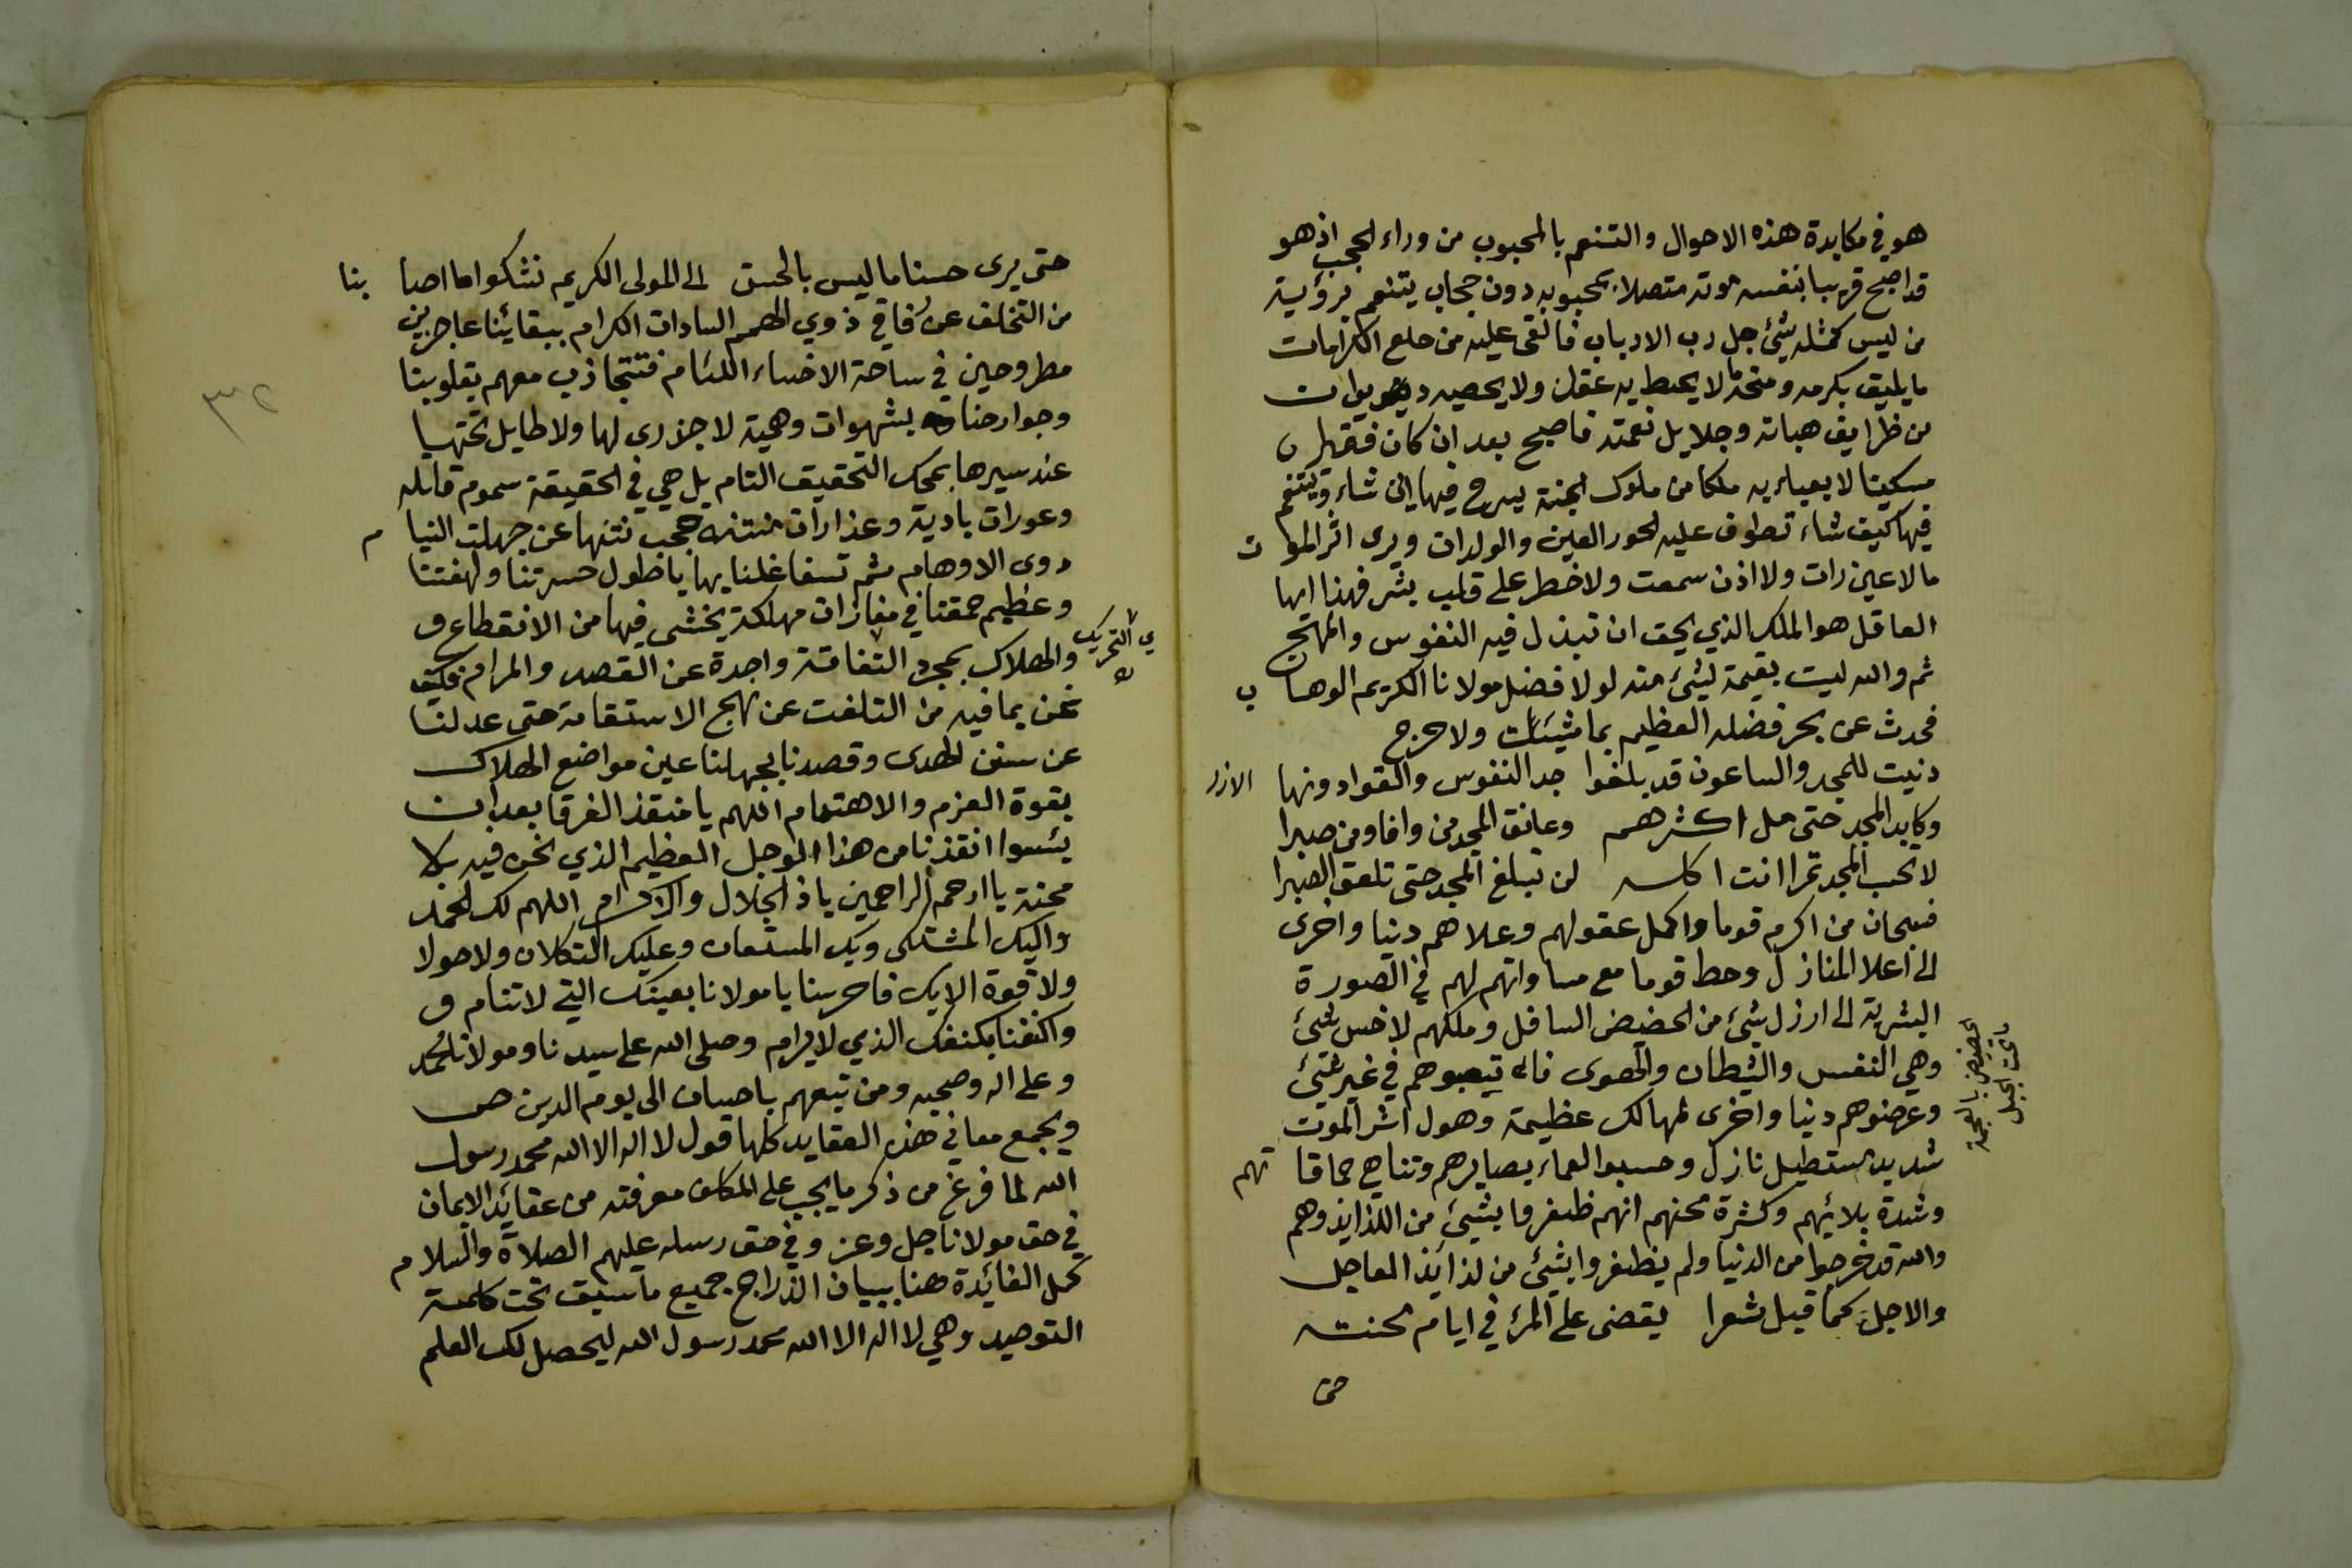 هو في مكابدة هذه الاحوال والتنعم بالمحبوب من وراء الحجب اذ هو
قد اصبح قريبا بنفس موته متصلا بمحبوبه دون حجاب يتنعم برؤية
من ليس كمثله شيئ جل رب الارباب فالقى عليه من خلع الكرامات
ما يليق بكرمه ومنحة لا يحيط به عقل ولا يحصيه ديوان
من ظرايف هباته وجلايل نعمته فاصبح بعد ان كان فقيرا
مسكينا لا يعباء به ملكا من ملوك الجنة يسرح فيها اين شاء ويتنعم
فيها كيف شاء تطوف عليه الحور العين والولدان ويرى اثر الموت
ما لا عين رات ولا اذن سمعت ولا خطر على قلب بشر فهذا ايها
العاقل هو الملك الذي يحق ان تبذل فيه النفوس والمهج
ثم والله ليت بقيمة لشئ منه لولا فضل مولانا الكريم الوهاب
فحدث عن بحر فضله العظيم بما شئت ولا حرج
دنيت للمجد والساعون قد بلغوا جد النفوس والقوا دونها الازر
وكابد المجد حتى مل اكثرهم وعانق المجد من وافا ومن صبرا
لا تحسب المجد تمرا انت اكله لن تبلغ المجد حتى تلعق الصبرا
فسبحان من اكرم قوما واكمل عقولهم وعلاهم دنيا واخرى
الى اعلا المنازل وحط قوما مع مساواتهم لهم في الصورة
البشرية الى ارزل شيئ من الحضيض السافل وملكهم لاخس شيئ
وهي النفس والشيطان والهوى فاله تيعبوهم في غير شيئ
وعرضوهم دنيا واخرى لمهالك عظيمة وهول اثر الموت
شديد مستطيل نازل وحسبوا لعماء بصايرهم وتناهي حماقاتهم
وشدة بلائهم وكثرة محنهم انهم ظفروا بشيئ من اللذايذ وهم
والله قد خرجوا من الدنيا ولم يظفروا بشيئ من لذايذ العاجل
والاجل كما قيل شعرا يقضى على المرء في ايام محنته
حتى
الحضيض بالمعجمة
ما تحت الجبل
حتى يرى حسنا ما ليس بالحسن الى المولى الكريم نشكوا ما اصابنا
من التخلف عن رُفاقي ذوي الهمم السادات الكرام ببقائنا عاجزين
مطروحين في ساحة الاخساء اللئام فنتجاذب معهم بقلوبنا
وجوارحنا بشهوات وهمية لا جزرى لها ولا طايل تحتها
عند سيرها بمحك التحقيق التام بل هي في الحقيقة سموم قاتله
وعورات بادية وعذارات منتنه حجب نتنها عن جهلت النيام
ذوى الاوهام ثم تسفا غلنا بها يا طول حسرتنا ولهفتنا
وعظيم حمقنا في مفازات مهلكة يخشى فيها من الانقطاع و
والهلاك بمجرد التفاتة واحدة عن القصد والمرام فكيف
نحن بما فيه من التلفت عن نهج الاستقامة حتى عدلنا
عن سنن الهدى وقصدنا بجهلنا عين مواضع الهلاك
بقوة العزم والاهتمام اللهم يا منقذ الغرقا بعد ان
يئسوا انقذنا من هذا الوحل العظيم الذي نحن فيه بلا
محنة يا ارحم الراحمين يا ذا الجلال والاكرام اللهم لك الحمد
واليك المشتكى وبك المستعان وعليك التكلان ولا حولا
ولا قوة الا بك فاحرسنا يا مولانا بعينك التي لا تنام و
واكنفنا بكنفك الذي لا يرام وصلى الله على سيدنا ومولانا محمد
وعلى اله وصحبه ومن تبعهم باحسان الى يوم الدين ص
ويجمع معاني هذه العقايد كلها قول لا اله الا الله محمد رسول
الله لما فرغ من ذكر ما يجب على المكلف معرفته من عقائد الايمان
في حق مولانا جل وعز وفي حق رسله عليهم الصلاة والسلام
كمل الفائدة هنا ببيان اندراج جميع ما سبق تحت كلمة
التوحيد وهي لا اله الا الله محمد رسول الله ليحصل لك العلم
٣٢